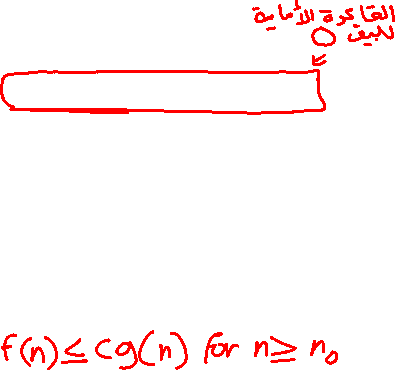 القاعدة الأمامية
للبيف O
f(n) ≤ cg(n) for n ≥ n₀